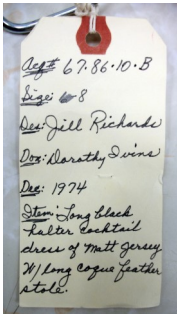 Acq# 67.86.10.B
Size: 8
Des: Jill Richards
Don: Dorothy Ivins
Dec: 1974
Item: Long black
halter cocktail
dress of matt jersey
W/long coque feather
stole.